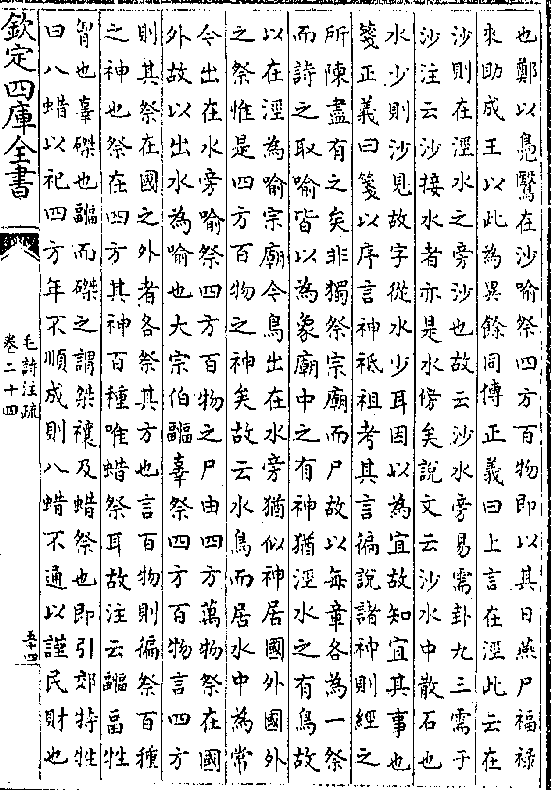 也鄭以鳧鷖在沙喻祭四方百物即以其日燕尸福禄
來助成王以此為異餘同傳正義曰上言在涇此云在
沙則在涇水之旁沙也故云沙水旁易需卦九三需于
沙注云沙接水者亦是水傍矣說文云沙水中散石也
水少則沙見故字從水少耳因以為宜故知宜其事也
箋正義曰箋以序言神祗祖考其言徧說諸神則經之
所陳盡有之矣非獨祭宗廟而尸故以每章各為一祭
而詩之取喻皆以為象廟中之有神猶涇水之有鳥故
以在涇為喻宗廟令鳥出在水旁猶似神居國外國外
之祭惟是四方百物之神矣故云水鳥而居水中為常
今出在水旁喻祭四方百物之尸由四方萬物祭在國
外故以出水為喻也大宗伯疈辜祭四方百物言四方
則其祭在國之外者各祭其方也言百物則徧祭百種
之神也祭在四方其神百種唯蜡祭耳故注云疈疈牲
胷也辜磔也疈而磔之謂桀禳及蜡祭也即引郊特牲
曰八蜡以祀四方年不順成則八蜡不通以謹民財也
欽定四庫全書
毛詩注疏
卷二十四
五十四